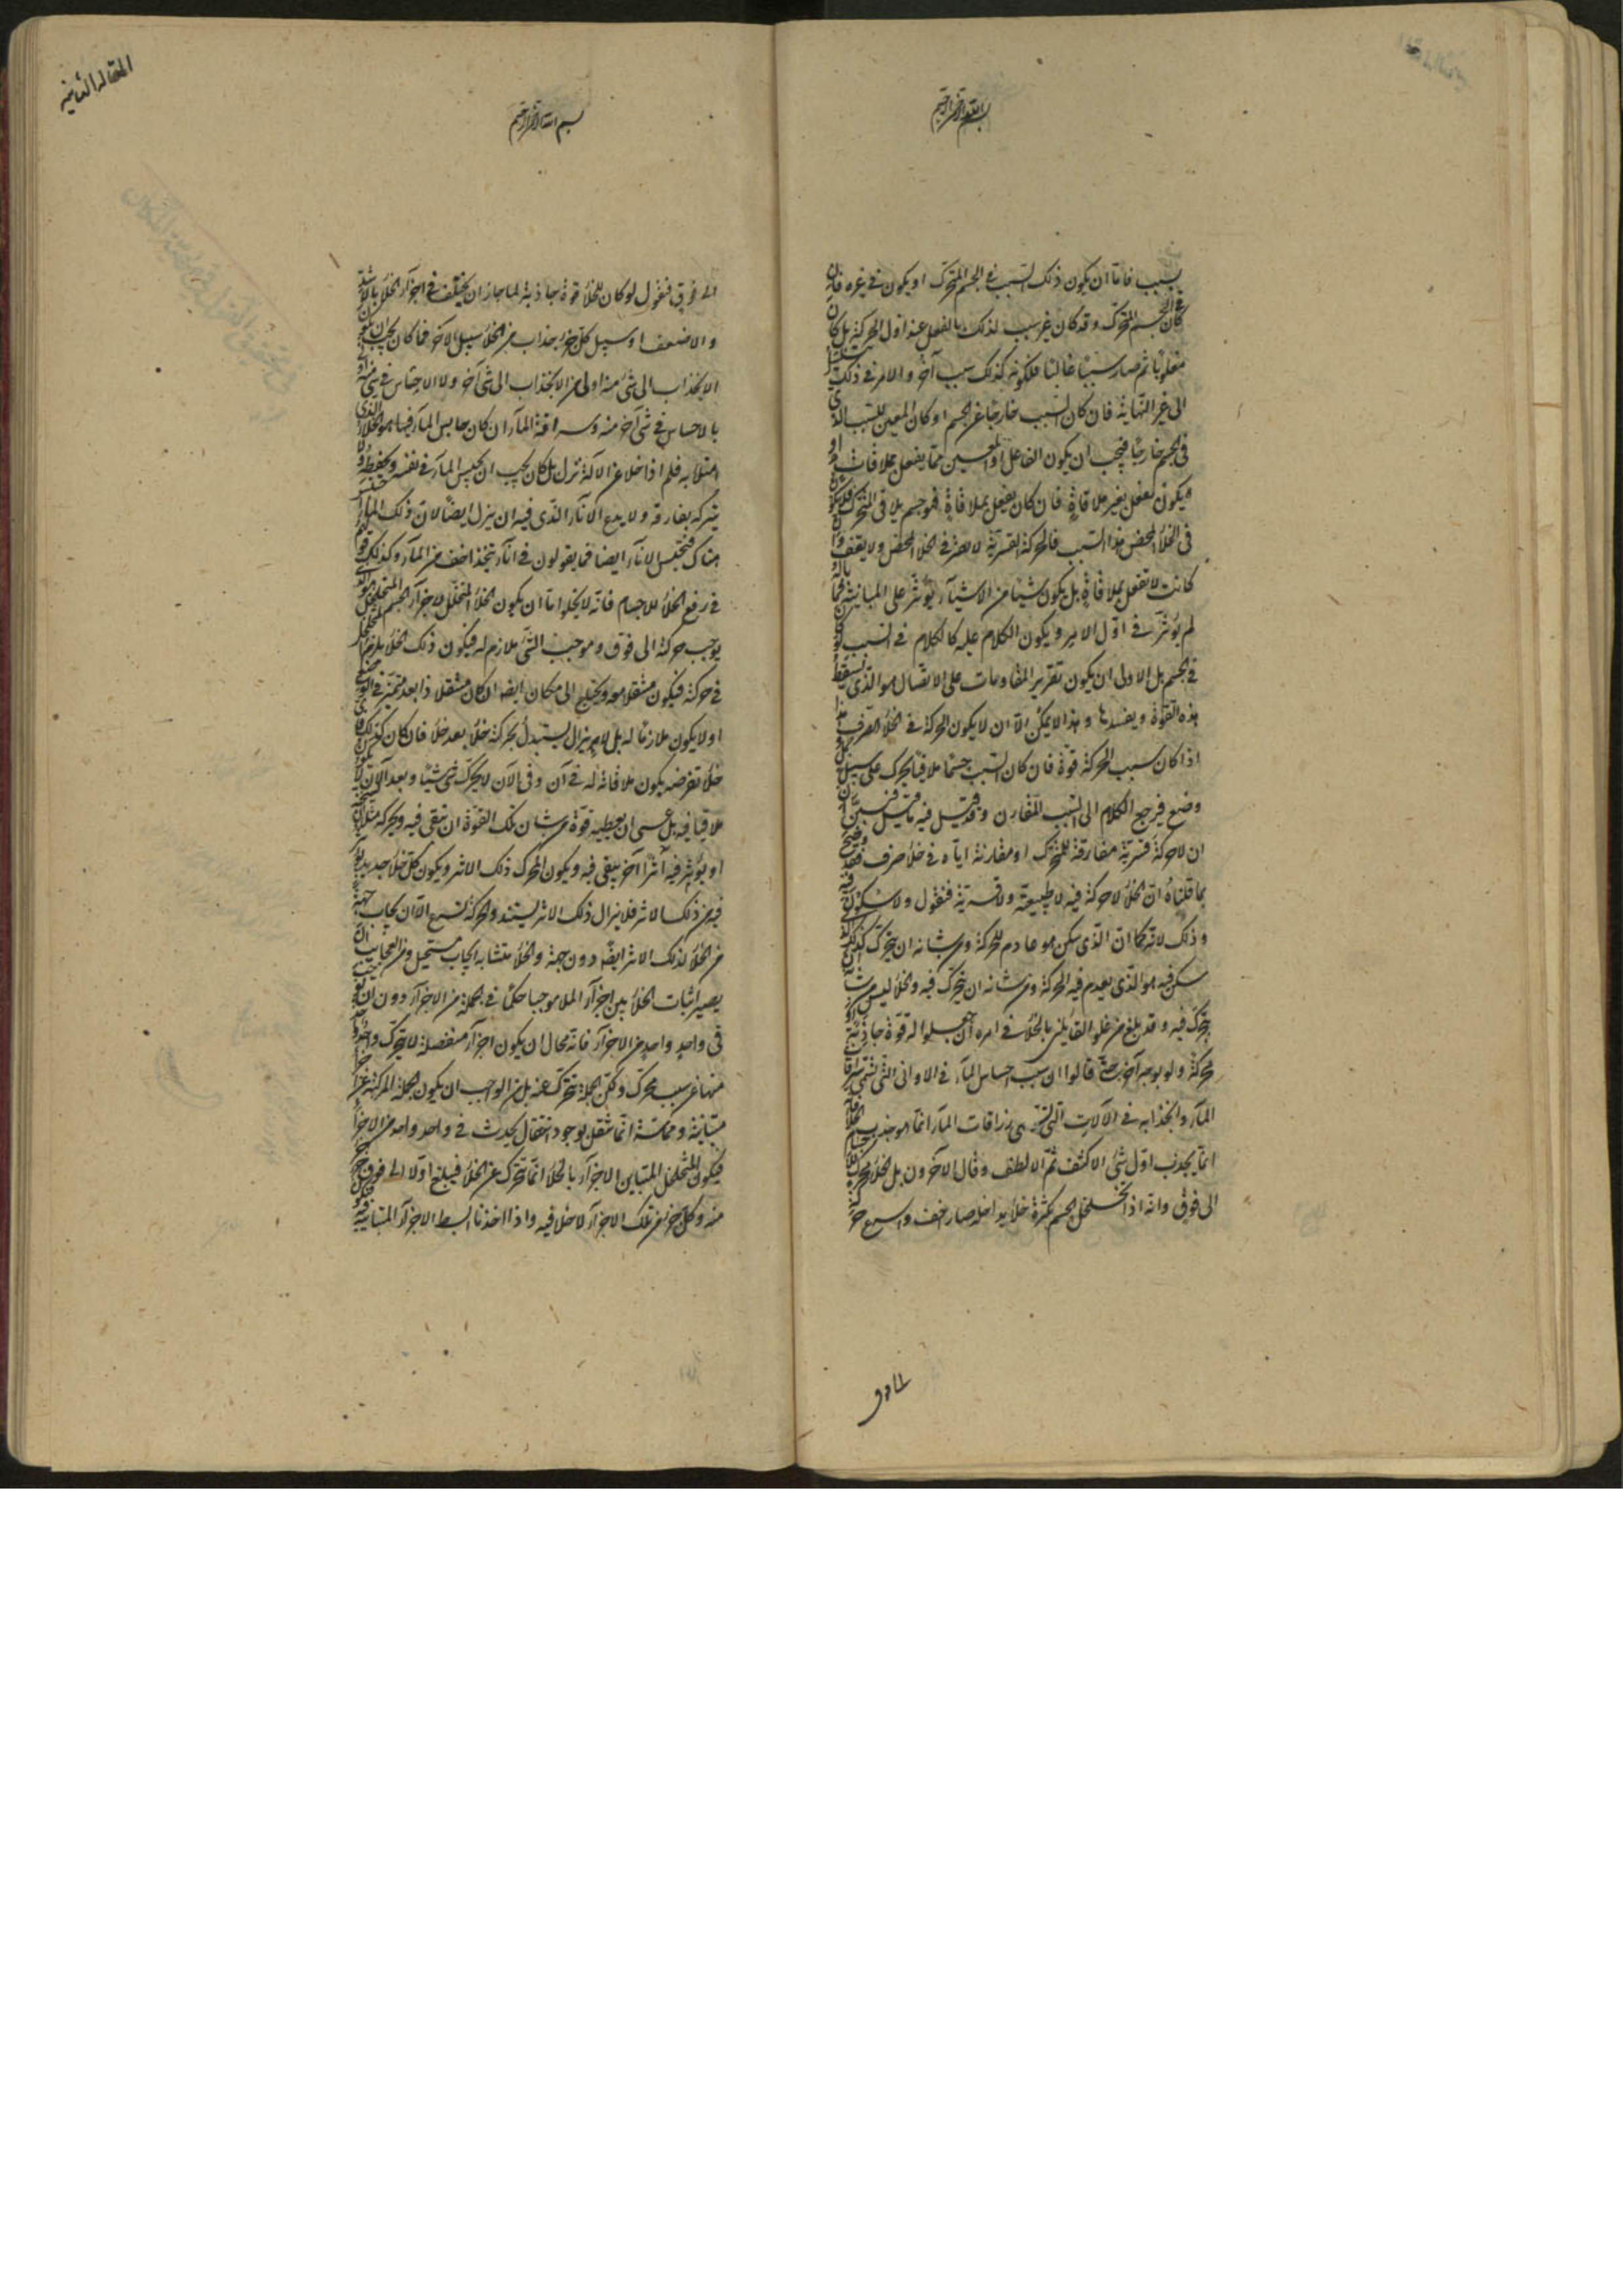 بسم الله الرحمن الرحيم
بسبب فاما ان يكون ذلك السبب في الجسم المتحرك او يكون في غيره فان
كان في الجسم المتحرك وقد كان غير سبب لذلك بالفعل عند اول الحركة بل كان
مغلوبا ثم صار سببا غالبا فلكونه كذلك سبب آخر والامر في ذلك
الى غير النهاية فان كان السبب خارجا عن الجسم او كان المعين للسبب الذي
في الجسم خارجا فيجب ان يكون الفاعل او المعين مما يفعل بملاقات او
يكون يفعل بغير ملاقاة فان كان يفعل بملاقاة فهو جسم يلاقى المتحرك فلا يكون
في الخلأ المحض هذا السبب فالحركة القسرية لا تفتر في الخلأ المحض ولا تقف وان
كانت لا تفعل بملاقاة بل يكون شيئا من الاشيآء يؤثر على المباينة فما باله
لم يؤثر في اول الامر ويكون الكلام عليه كالكلام في السبب لو كان
في الجسم بل الاولى ان يكون تقرير المقاومات على الاتصال هو الذي يسقط
هذه القوة ويفسدها وهذا لا يمكن الا ان لا يكون الحركة في الخلأ الصرف هذا
اذا كان سبب الحركة قوة فان كان السبب جسما ملاقيا يحرك على سبيل
وضع فيرجع الكلام الى السبب المقارن وقد قيل فيه ما قيل فبين
ان لا حركة قسرية مفارقة للمتحرك او مقارنة اياه في خلأ صرف فقد وضح
بما قلناه ان الخلأ لا حركة فيه لا طبيعية ولا قسرية فنقول ولا سكون فيه
وذلك لانه كما ان الذي يسكن هو عادم للحركة ومن شانه ان يتحرك كذلك الذي
يسكن فيه هو الذي يعدم فيه الحركة ومن شانه ان يتحرك فيه والخلأ ليس من شانه ان
يتحرك فيه وقد بلغ من غلو القايلين بالخلأ في امره ان جعلوا له قوة جاذبة او
محركة ولو بوجه آخر حتى قالوا ان سبب احتباس المآء في الاواني التي تسمى سراقات
المآء وانجذابه في الآلات التي تسمى زراقات المآء انما هو جذب الخلأ وانه
انما يجذب اول شئ الاكثف ثم الالطف وقال الآخرون بل الخلأ محرك للاجسام
الى فوق وانه اذا تخلخل الجسم بكثرة خلأ يداخله صار اخف واسرع حركة
الى فوق
المقالة الثانية
بسم الله الرحمن الرحيم
الى فوق فنقول لو كان للخلأ قوة جاذبة لما جاز ان يختلف في اجزآء الخلأ بالاشد
والاضعف اذ سبيل كل جزء جذاب من الخلأ سبيل الآخر فما كان يجب ان يكون
الانجذاب الى شئ منه اولى من الانجذاب الى شئ آخر ولا الاحتباس في شئ منه اولى
بالاحتباس في شئ آخر منه وسراقة المآء ان كان حابس المآء فيها هو الخلأ الذي
امتلأ به فلم اذا خلا عن الآلة نزل بل كان يجب ان يحبس المآء في نفسه ويحفظه ولا
يتركه يفارقه ولا يدع الانآء الذي فيه ان ينزل ايضا لان ذلك المآء حبس
هناك فيحتبس الانآء ايضا فما يقولون في انآء يتخذ اخف من المآء وكذلك قولهم
في رفع الخلأ للاجسام فانه لا يخلو اما ان يكون الخلأ المتخلل لاجزآء الجسم المتخلخل هو الذي
يوجب حركة الى فوق وموجب الشئ ملازم له فيكون ذلك الخلأ يلزم المتخلخل
في حركته فيكون منتقلا معه ويحتاج الى مكان ايضا ان كان منتقلا ذا بعد متميز في الوضع
او لا يكون ملازما له بل لا يزال يستبدل بحركته خلأ بعد خلأ فان كان كذلك فاى
خلأ نفرضه يكون ملاقاته له في آن وفي الآن لا يحرك شئ شيئا وبعد الآن لا يكون
ملاقيا فيه بل عسى ان يعطيه قوة من شان تلك القوة ان تبقى فيه وتحركه مثلا ان يسخنه
او يؤثر فيه اثرا آخر يبقى فيه ويكون المحرك ذلك الاثر ويكون كل خلأ جديد يؤثر
فيه من ذلك الاثر فلا يزال ذلك الاثر يشتد والحركة تسرع الا ان ايجاب جهة
من الخلأ لذلك الاثر ايضا دون جهة والخلأ متشابه ايجاب مستحيل ومن العجايب ان
يصير اثبات الخلأ بين اجزآء الملا موجبا حكما في جملة من الاجزآء دون ان يوجب
في واحد واحد من الاجزآء فانه محال ان يكون اجزآء منفصلة لا يتحرك واحد واحد
منها عن سبب محرك ولكن الجملة تتحرك عنه بل من الواجب ان يكون الجملة المركبة عن اجزآء
متباينة ومماسة انما تنتقل بوجود انتقال يحدث في واحد واحد من الاجزآء
فيكون المتخلخل المتباين الاجزآء بالخلأ انما تتحرك عن الخلأ فيبلغ اولا الى فوق كل جزء
منه وكل جزء من تلك الاجزآء لا خلأ فيه واذا اخذنا ابسط الاجزآء المتباينة فيه